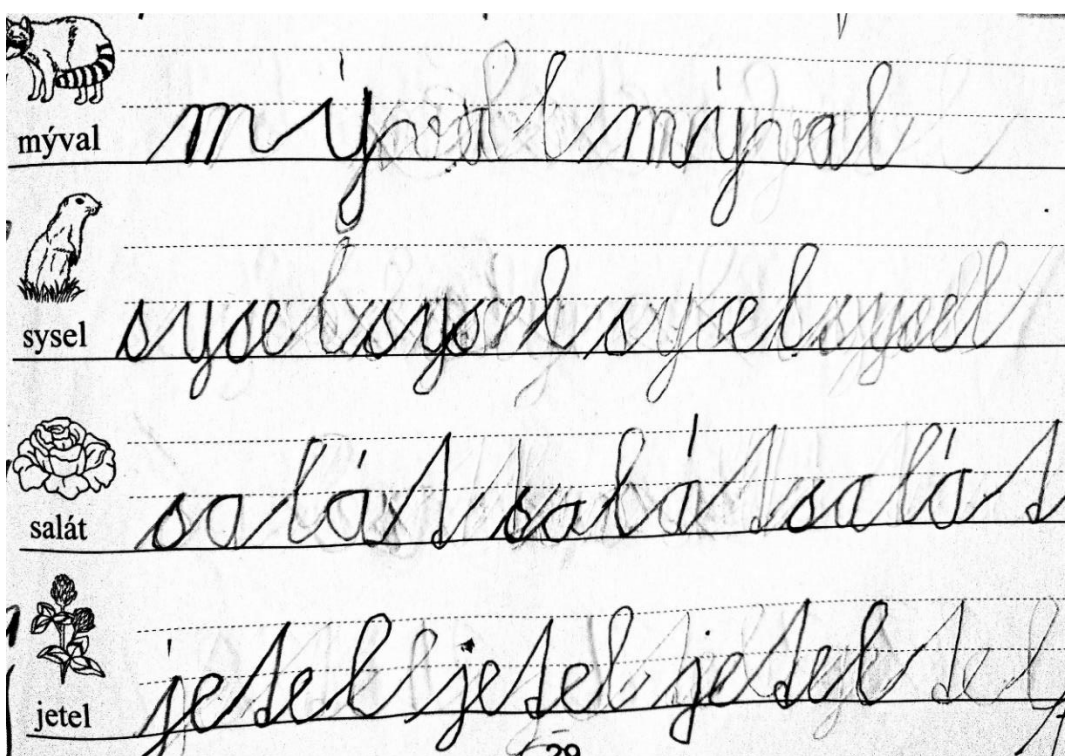 mýval mýval mýval
sysel sysel sysel sysel sysel
salát salát salát salát
jetel jetel jetel jetel
29